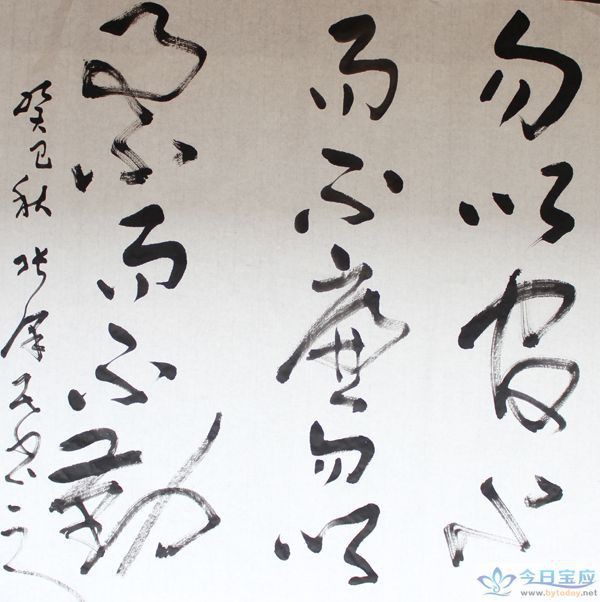 勿以官小
而不廉勿以
事小而不勤
癸巳秋 书之
今日宝应
www.bytoday.net